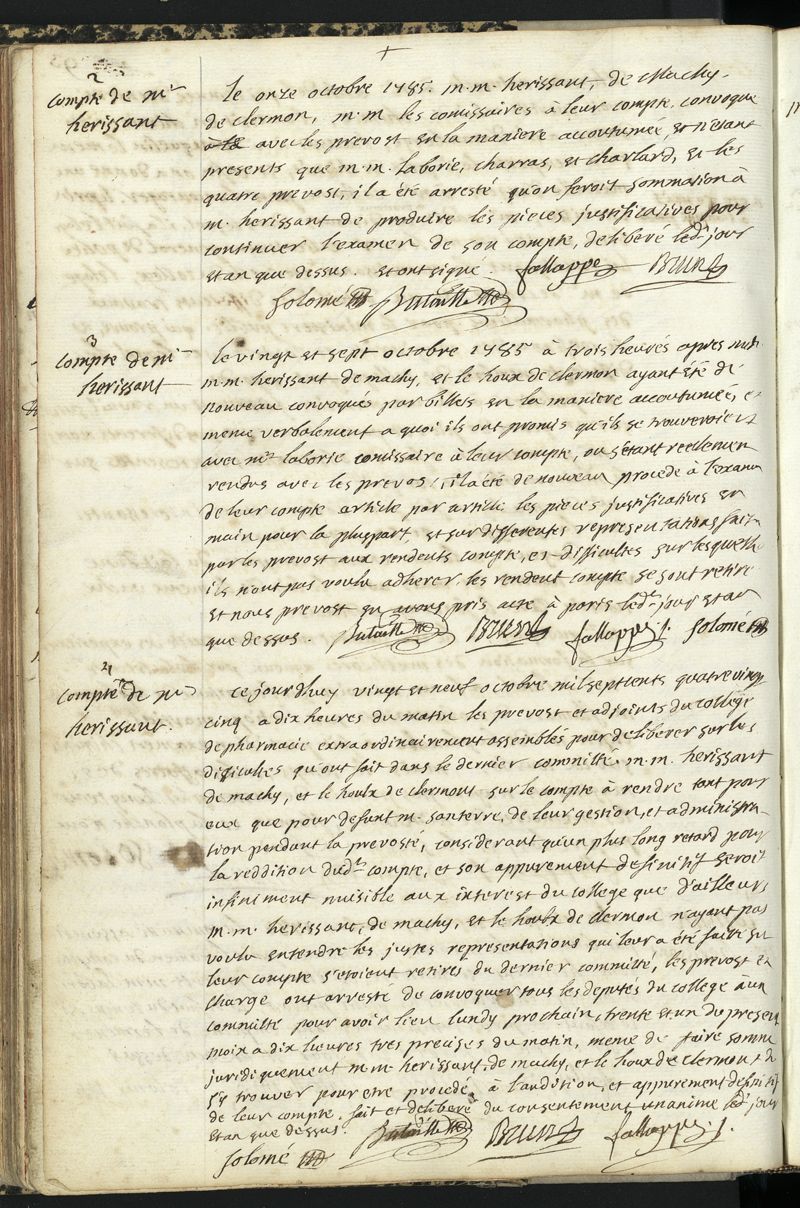 2
compte de mr
herissant
le onze octobre 1785. m.m. herissant, de Machy,
de clermon, m.m les comissaires à leur compte, convoque
avec les prevost en la maniere accoutumée, et n'etant
presents que m.m. laborie, charras, et charlard, et les
quatre prevost, il a été arresté qu'on feroit sommation à
m. herissant de produire les pieces justificatives pour
continuer l'examen de son compte, deliberé led. jour
et an que dessus. et ont signé. fallappe Brun
Solomé Bataille
3
compte de mr
herissant
le vingt et sept octobre 1785 à trois heurés apres midi
m.m. herissant de machy, et le houx de clermon ayant été de
nouveau convoqués par billets en la maniere accoutumée, et
meme verbalement a quoi ils ont promis qu'ils se trouveroient
avec mr laborie comissaire à leur compte, ou s'étant reellement
rendus avec les prevost, il a été de nouveau procedé à l'examen
de leur compte article par article les pieces justificatives en
main pour la pluspart, et sur differentes representations faites
par les prevost aux rendents compte, et difficultes sur lesquelles
ils n'ont pas voulu adherer, les rendent compte se sont retiré
et nous prevost en avons pris acte à paris led. jour et an
que dessus. Bataille Brun fallappe j. Solomé
4
compte de mr
herissant.
ce jourd'huy vingt et neuf octobre mil sept cents quatre vingt
cinq a dix heures du matin les prevost et adjoints du college
de pharmacie extraordinairement assemblés pour deliberer sur les
difficultes qu'ont fait dans le dernier committé m.m. herissant
de machy, et le houlx de clermont sur le compte à rendre tant pour
eux que pour defunt m. santerre, de leur gestion, et administra-
tion pendant la prevosté, considerant qu'un plus long retard pour
la reddition dud. compte, et son appurement definitif seroit
infiniment nuisible aux interest du college que d'ailleurs
m.m. herissant, de machy, et le houlx de clermon n'ayant pas
voulu entendre les justes representations qui leur a été faite sur
leur compte s'etoient retirés du dernier committé, les prevost en
charge ont arresté de convoquer tous les deputés du college à un
committé pour avoir lieu lundy prochain, trente et un du present
mois a dix heures tres precises du matin, meme de faire sommer
juridiquement m.m. herissant, de machy, et le houx de clermont de
s'y trouver pour etre procedé à l'audition, et appurement definitif
de leur compte. fait et deliberé du consentement unanime led. jour
et an que dessus. Bataille Brun fallappe j.
Solomé